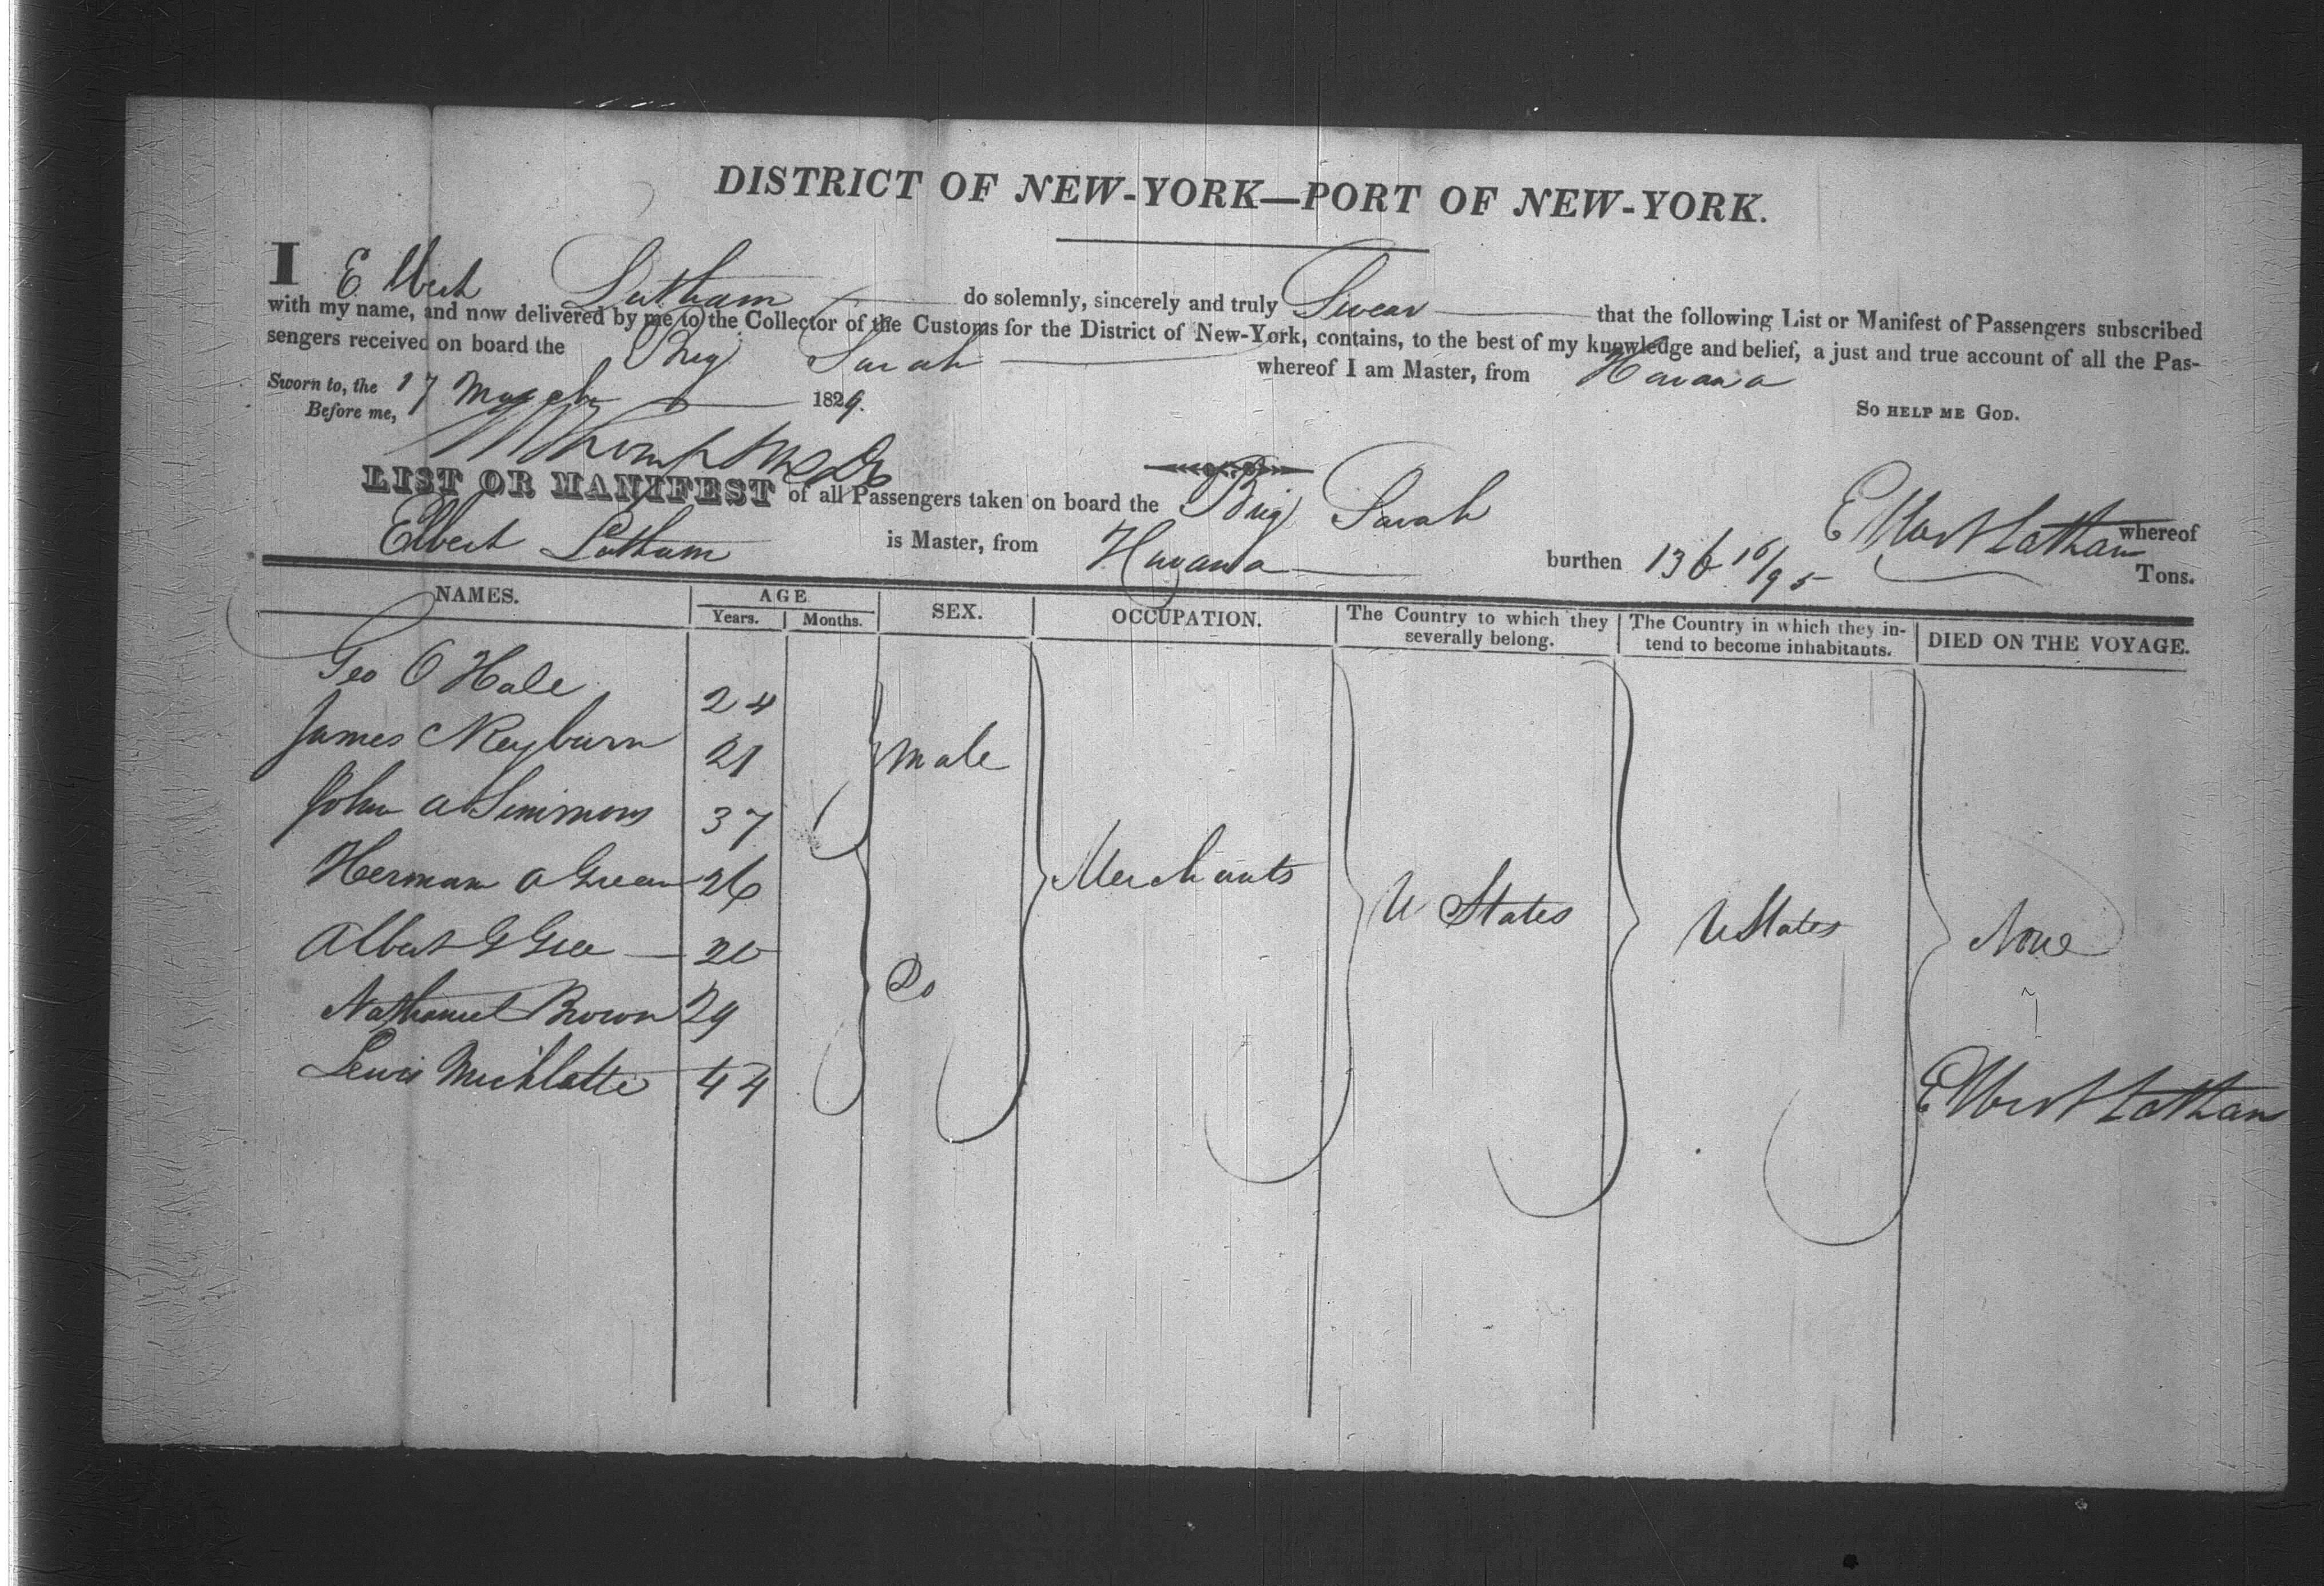 DISTRICT OF NEW-YORK—PORT OF NEW-YORK.
I Elbert Latham do solemnly, sincerely and truly Swear that the following List or Manifest of Passengers subscribed
with my name, and now delivered by me to the Collector of the Customs for the District of New-York, contains, to the best of my knowledge and belief, a just and true account of all the Pas-
sengers received on board the Brig Sarah whereof I am Master, from Havana
Sworn to, the 17 March 1829.
SO HELP ME GOD.
Before me,
Elbert Latham
LIST OR MANIFEST of all Passengers taken on board the Brig Sarah whereof
Elbert Latham is Master, from Havana burthen 136 16/95 Tons.
NAMES. AGE SEX. OCCUPATION. The Country to which they severally belong. The Country in which they in- tend to become inhabitants. DIED ON THE VOYAGE.
Years. Months.
Geo O Hale 24
James Reyburn 21 male
John A Simmons 37
Herman A Green 26 Merchants U States U States None
Albert G Gree 20
Do
Nathaniel Brown 29
Lewis 44
Elbert Latham